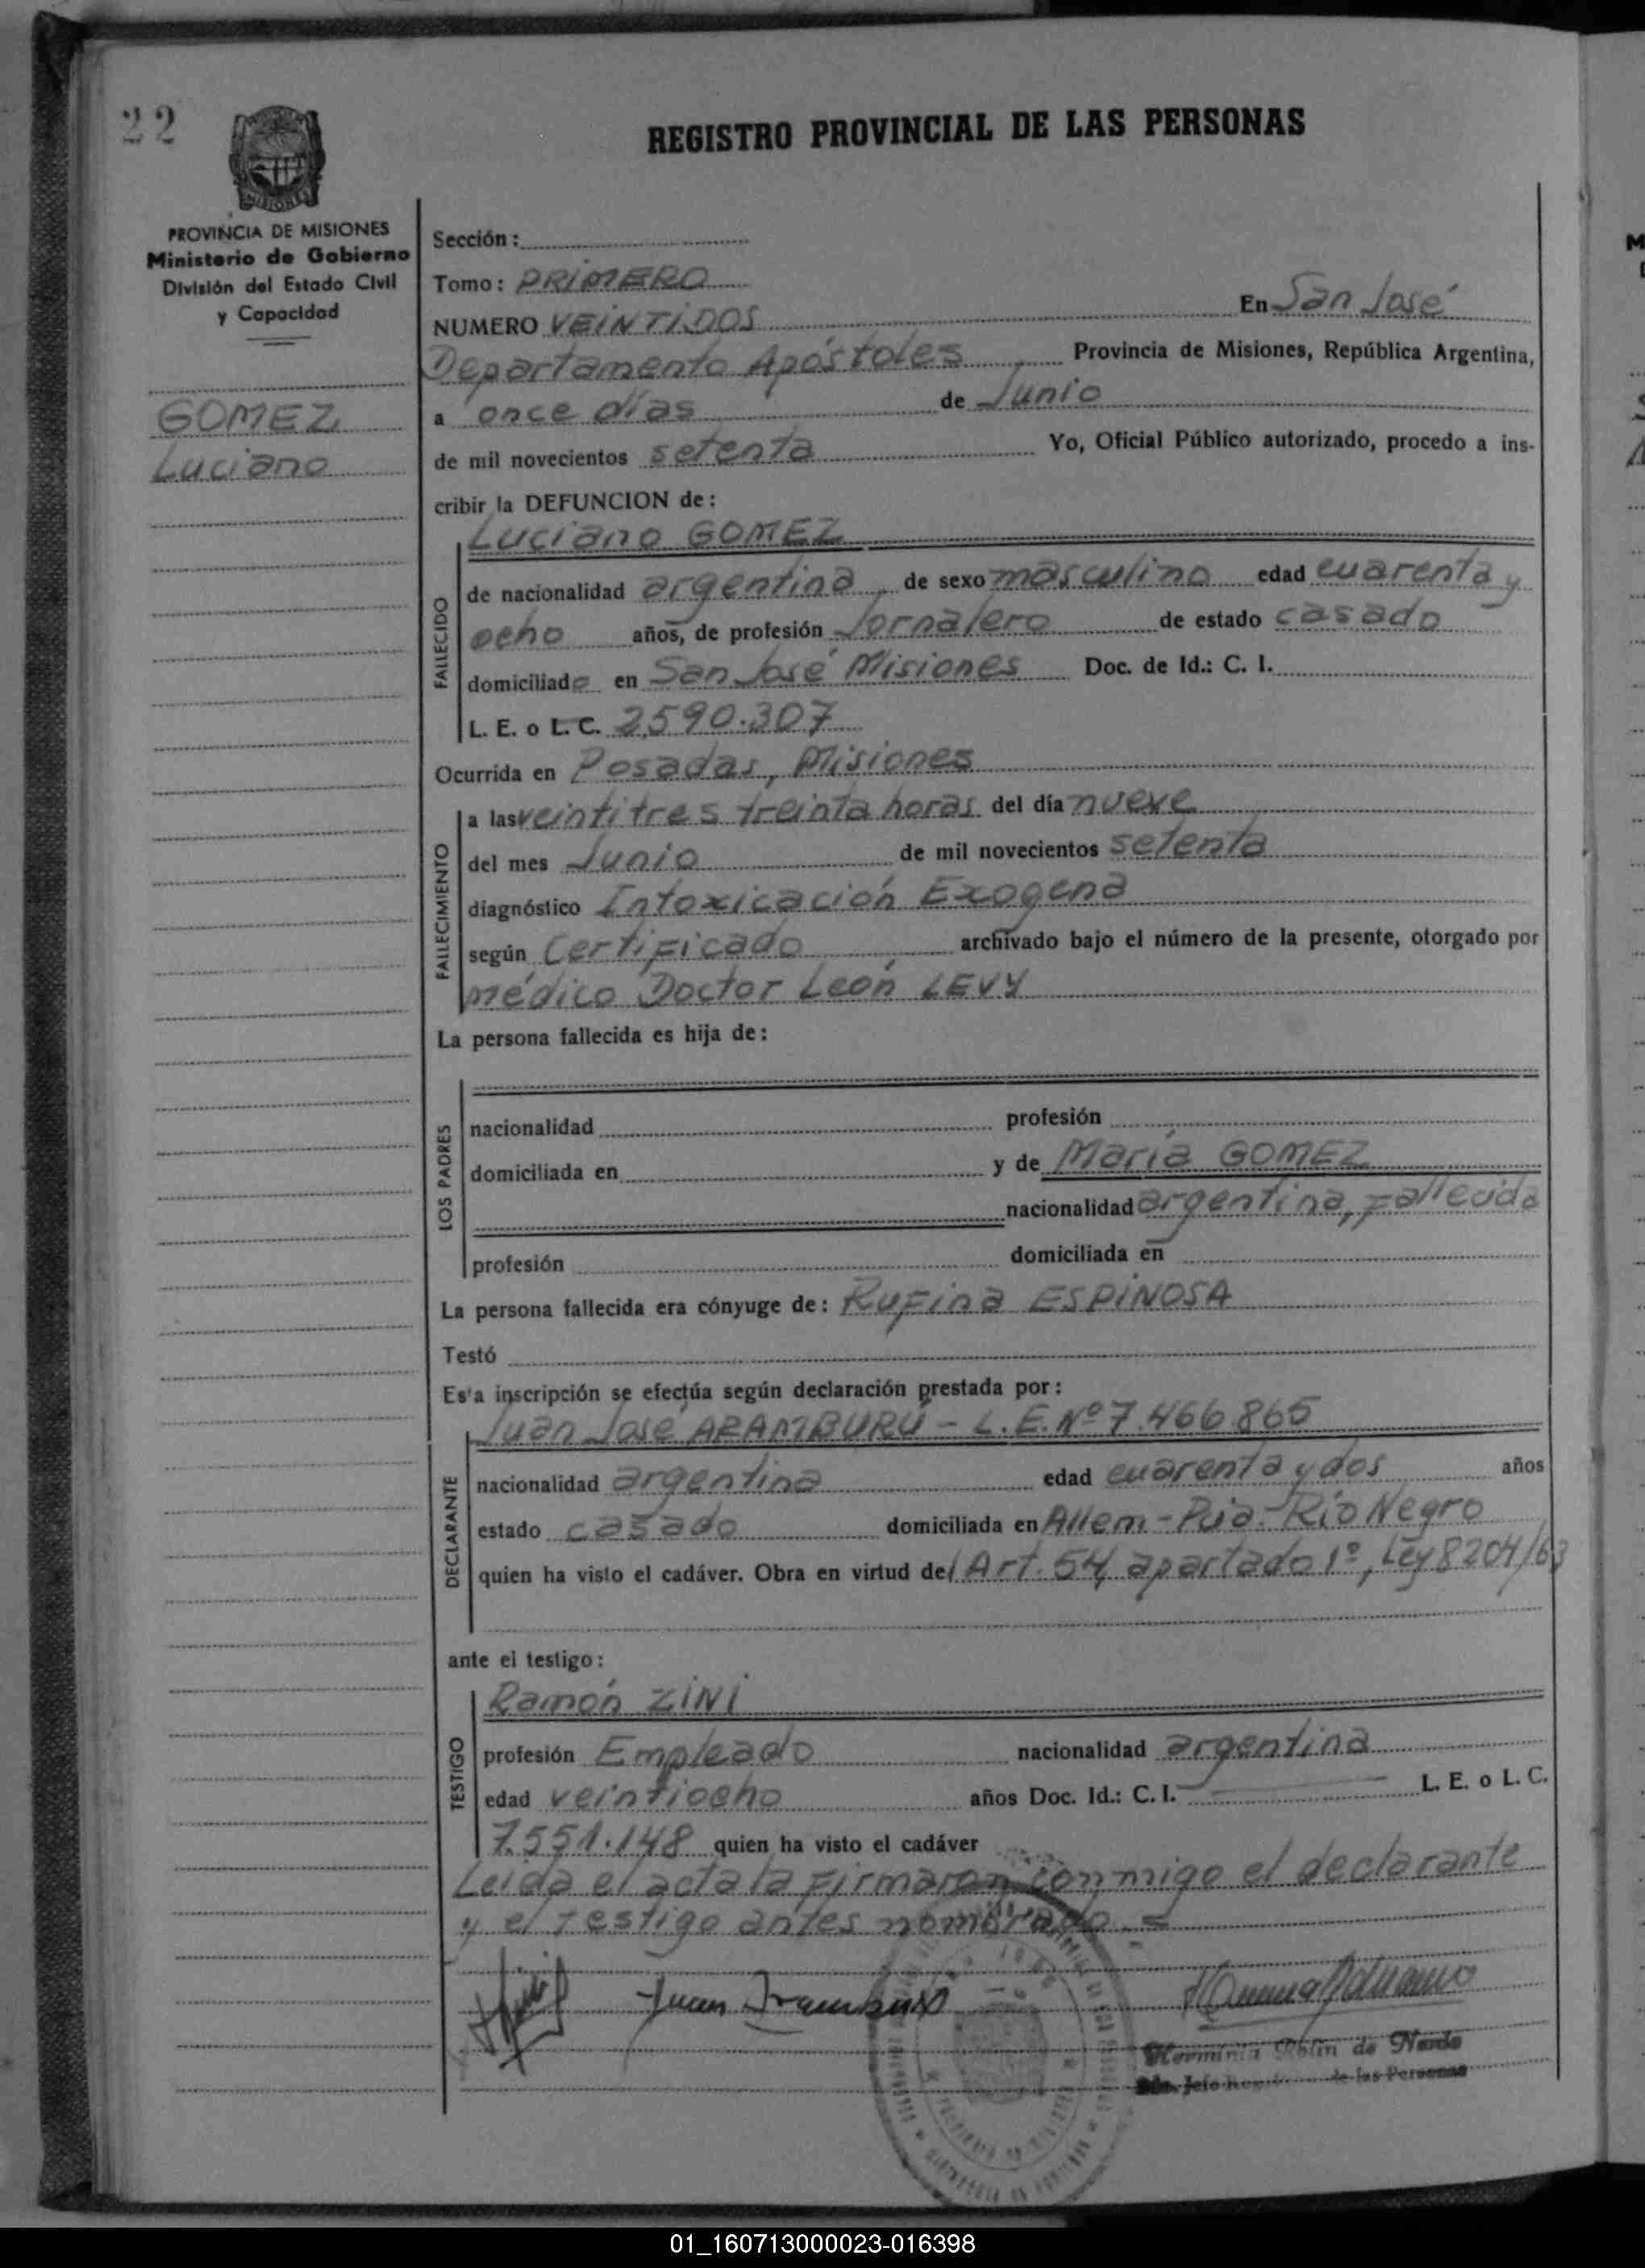 22
REGISTRO PROVINCIAL DE LAS PERSONAS
MISIONES
PROVINCIA DE MISIONES
Ministerio de Gobierno
División del Estado Civil
y Capacidad
GOMEZ
Luciano
Sección :
Tomo : PRIMERO
NUMERO VEINTIDOS En San José
Departamento Apóstoles Provincia de Misiones, República Argentina,
a once días de Junio
de mil novecientos setenta Yo, Oficial Público autorizado, procedo a ins-
cribir la DEFUNCION de :
Luciano GOMEZ
FALLECIDO
de nacionalidad argentina, de sexo masculino edad cuarenta y
ocho años, de profesión Jornalero de estado casado
domiciliado en San José Misiones Doc. de Id.: C. I.
L. E. o L. C. 2.590.307
Ocurrida en Posadas, Misiones
FALLECIMIENTO
a las veintitres treinta horas del día nueve
del mes Junio de mil novecientos setenta
diagnóstico Intoxicación Exogena
según Certificado archivado bajo el número de la presente, otorgado por
médico Doctor León LEVY
La persona fallecida es hija de :
LOS PADRES
nacionalidad profesión
domiciliada en y de María GOMEZ
nacionalidad argentina, fallecida
profesión domiciliada en
La persona fallecida era cónyuge de : Rufina ESPINOSA
Testó
Es'a inscripción se efectúa según declaración prestada por :
Juan José ARAMBURÚ - L.E. Nº 7.466.865
DECLARANTE
nacionalidad argentina edad cuarenta y dos años
estado casado domiciliada en Allem - Pcia. Río Negro
quien ha visto el cadáver. Obra en virtud del Art. 54, apartado 1º, Ley 8204/63
ante el testigo :
Ramón ZINI
TESTIGO
profesión Empleado nacionalidad argentina
edad veintiocho años Doc. Id.: C. I. L. E. o L. C.
7.551.148 quien ha visto el cadáver
Leida el acta la firmaron conmigo el declarante
y el testigo antes nombrado =
Juan Aramburú
de las Personas
01_160713000023-016398